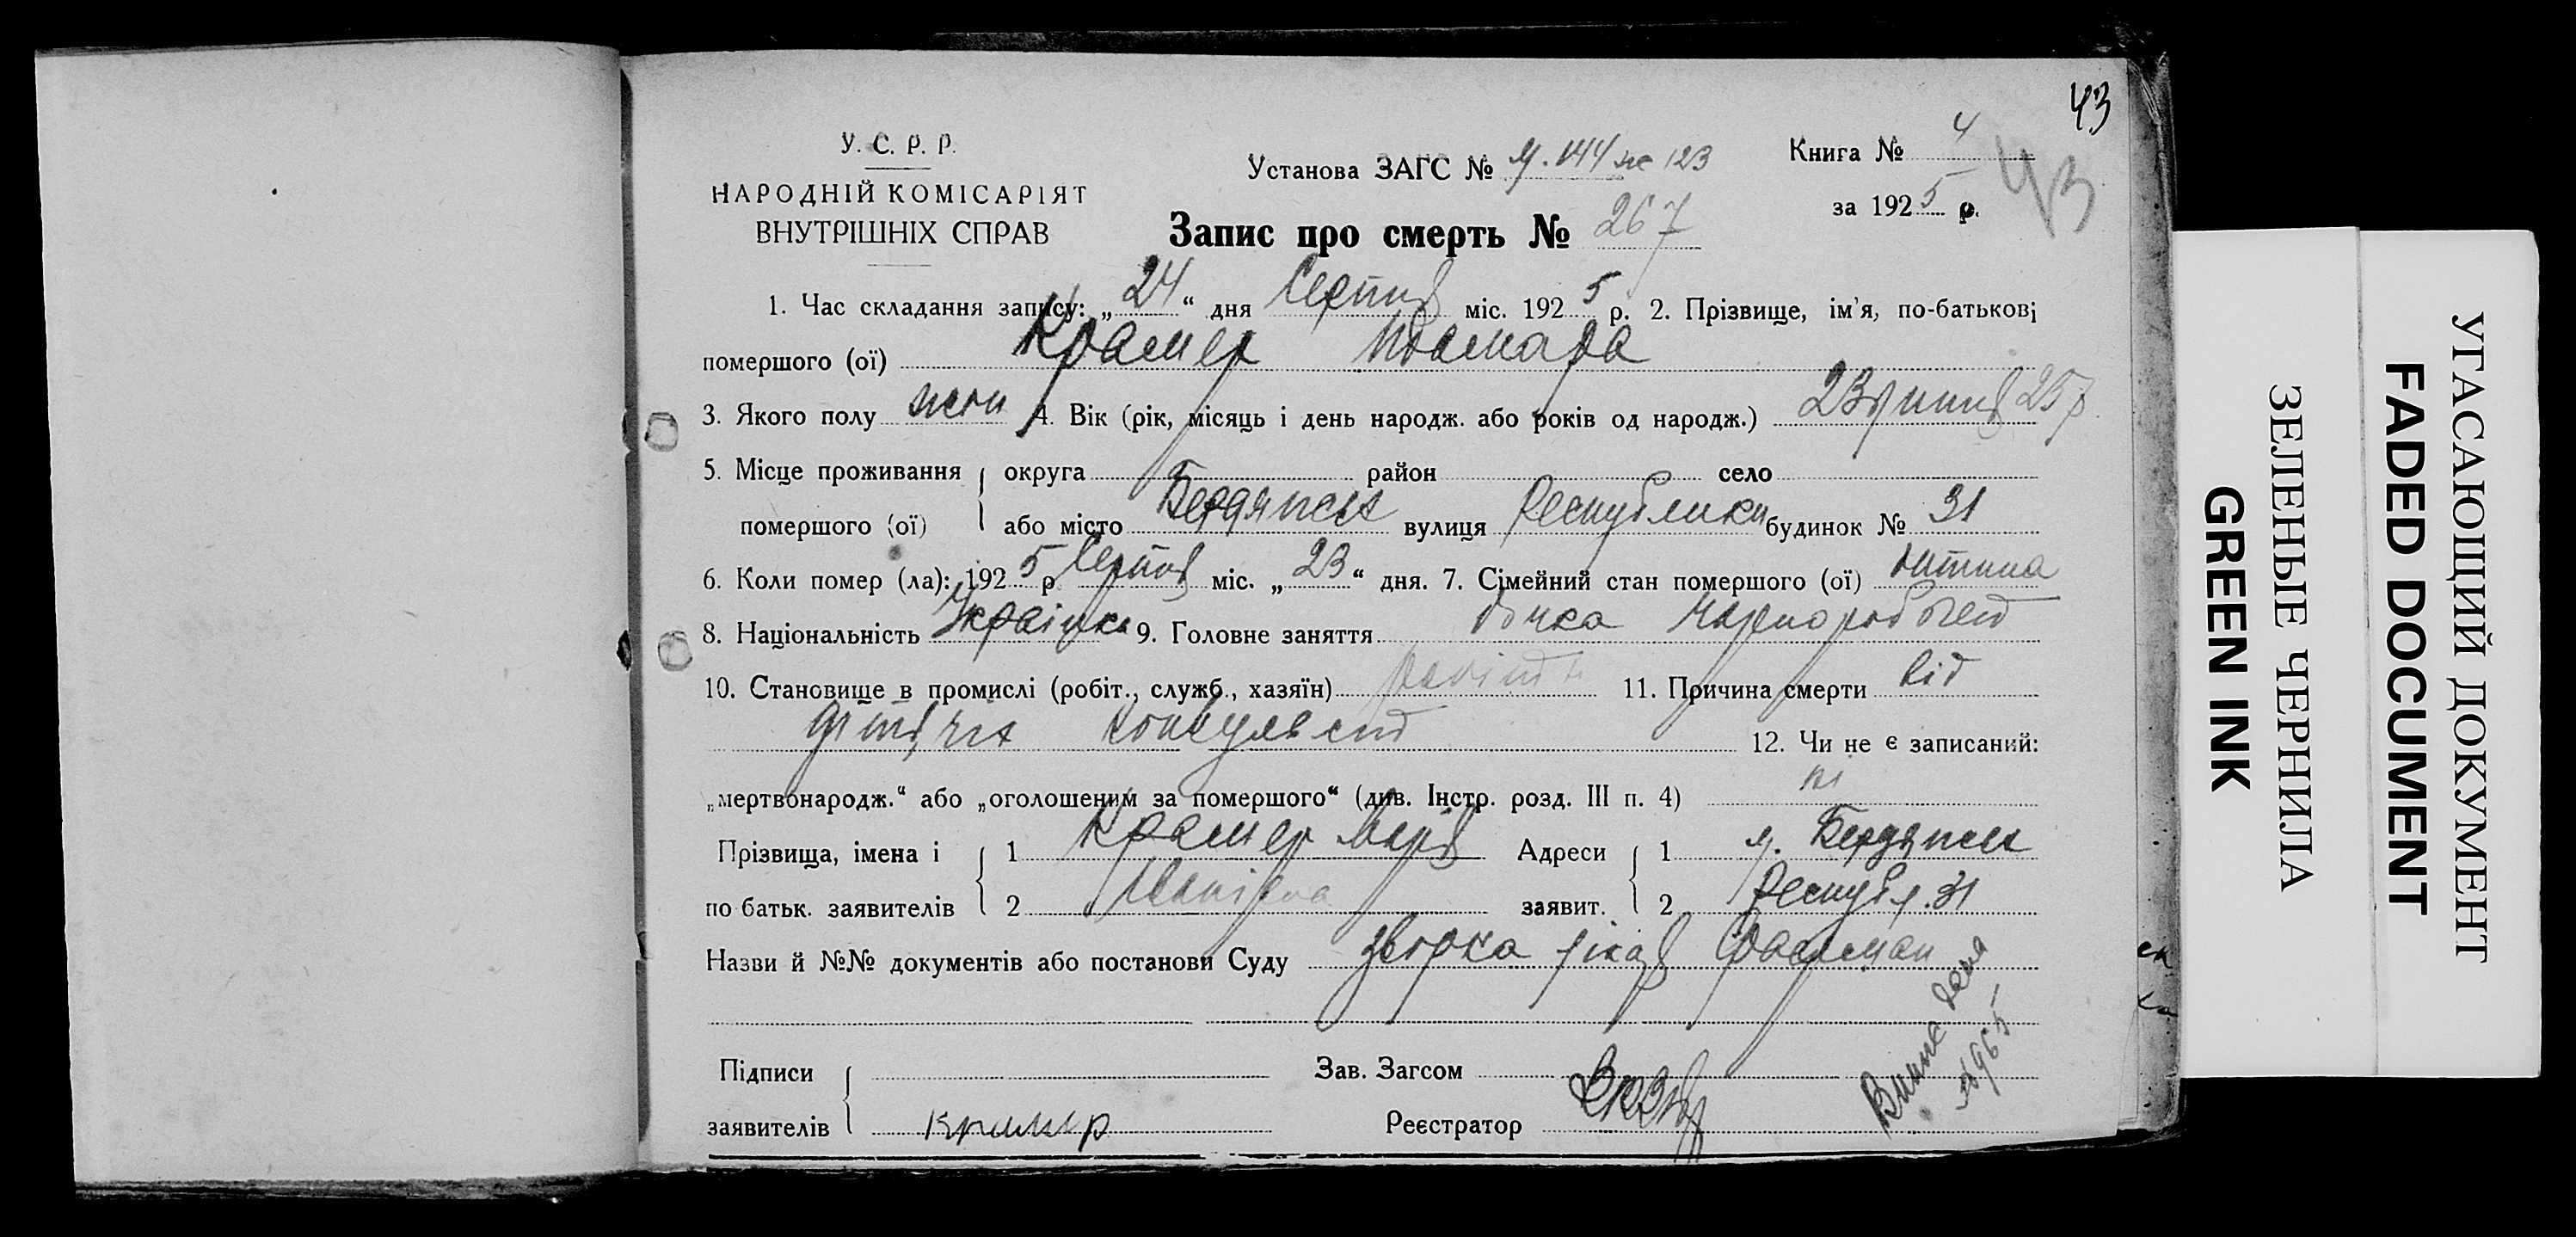 43
У. С. Р. Р.
НАРОДНІЙ КОМІСАРІЯТ
ВНУТРІШНІХ СПРАВ
Установа ЗАГС №
Книга № 4
за 1925 р.
43
Запис про смерть № 267
1. Час складання запису: „24“ дня Серпня міс. 1925 р. 2. Прізвище, ім'я, по-батькові
помершого (ої) Крамер
3. Якого полу жон 4. Вік (рік, місяць і день народж. або років од народж.) 23 липня 25 р.
5. Місце проживання округа район село
помершого (ої) або місто Бердянськ вулиця Республики будинок № 31
6. Коли помер (ла): 1925 р. Серпня міс. „23“ дня. 7. Сімейний стан помершого (ої) дитина
8. Національність Українка 9. Головне заняття дочка
10. Становище в промислі (робіт., служб., хазяїн) 11. Причина смерти від
дитячих конвульсій 12. Чи не є записаний:
„мертвонародж.“ або „оголошеним за помершого“ (див. Інстр. розд. III п. 4) ні
Прізвища, імена і 1 Крамер Марія Адреси 1 м. Бердянськ
по батьк. заявителів 2 Іванівна заявит. 2 Республ. 31
Назви й №№ документів або постанови Суду
Підписи Зав. Загсом
заявителів Крамер Реєстратор
УГАСАЮЩИЙ ДОКУМЕНТ
FADED DOCUMENT
ЗЕЛЕНЫЕ ЧЕРНИЛА
GREEN INK